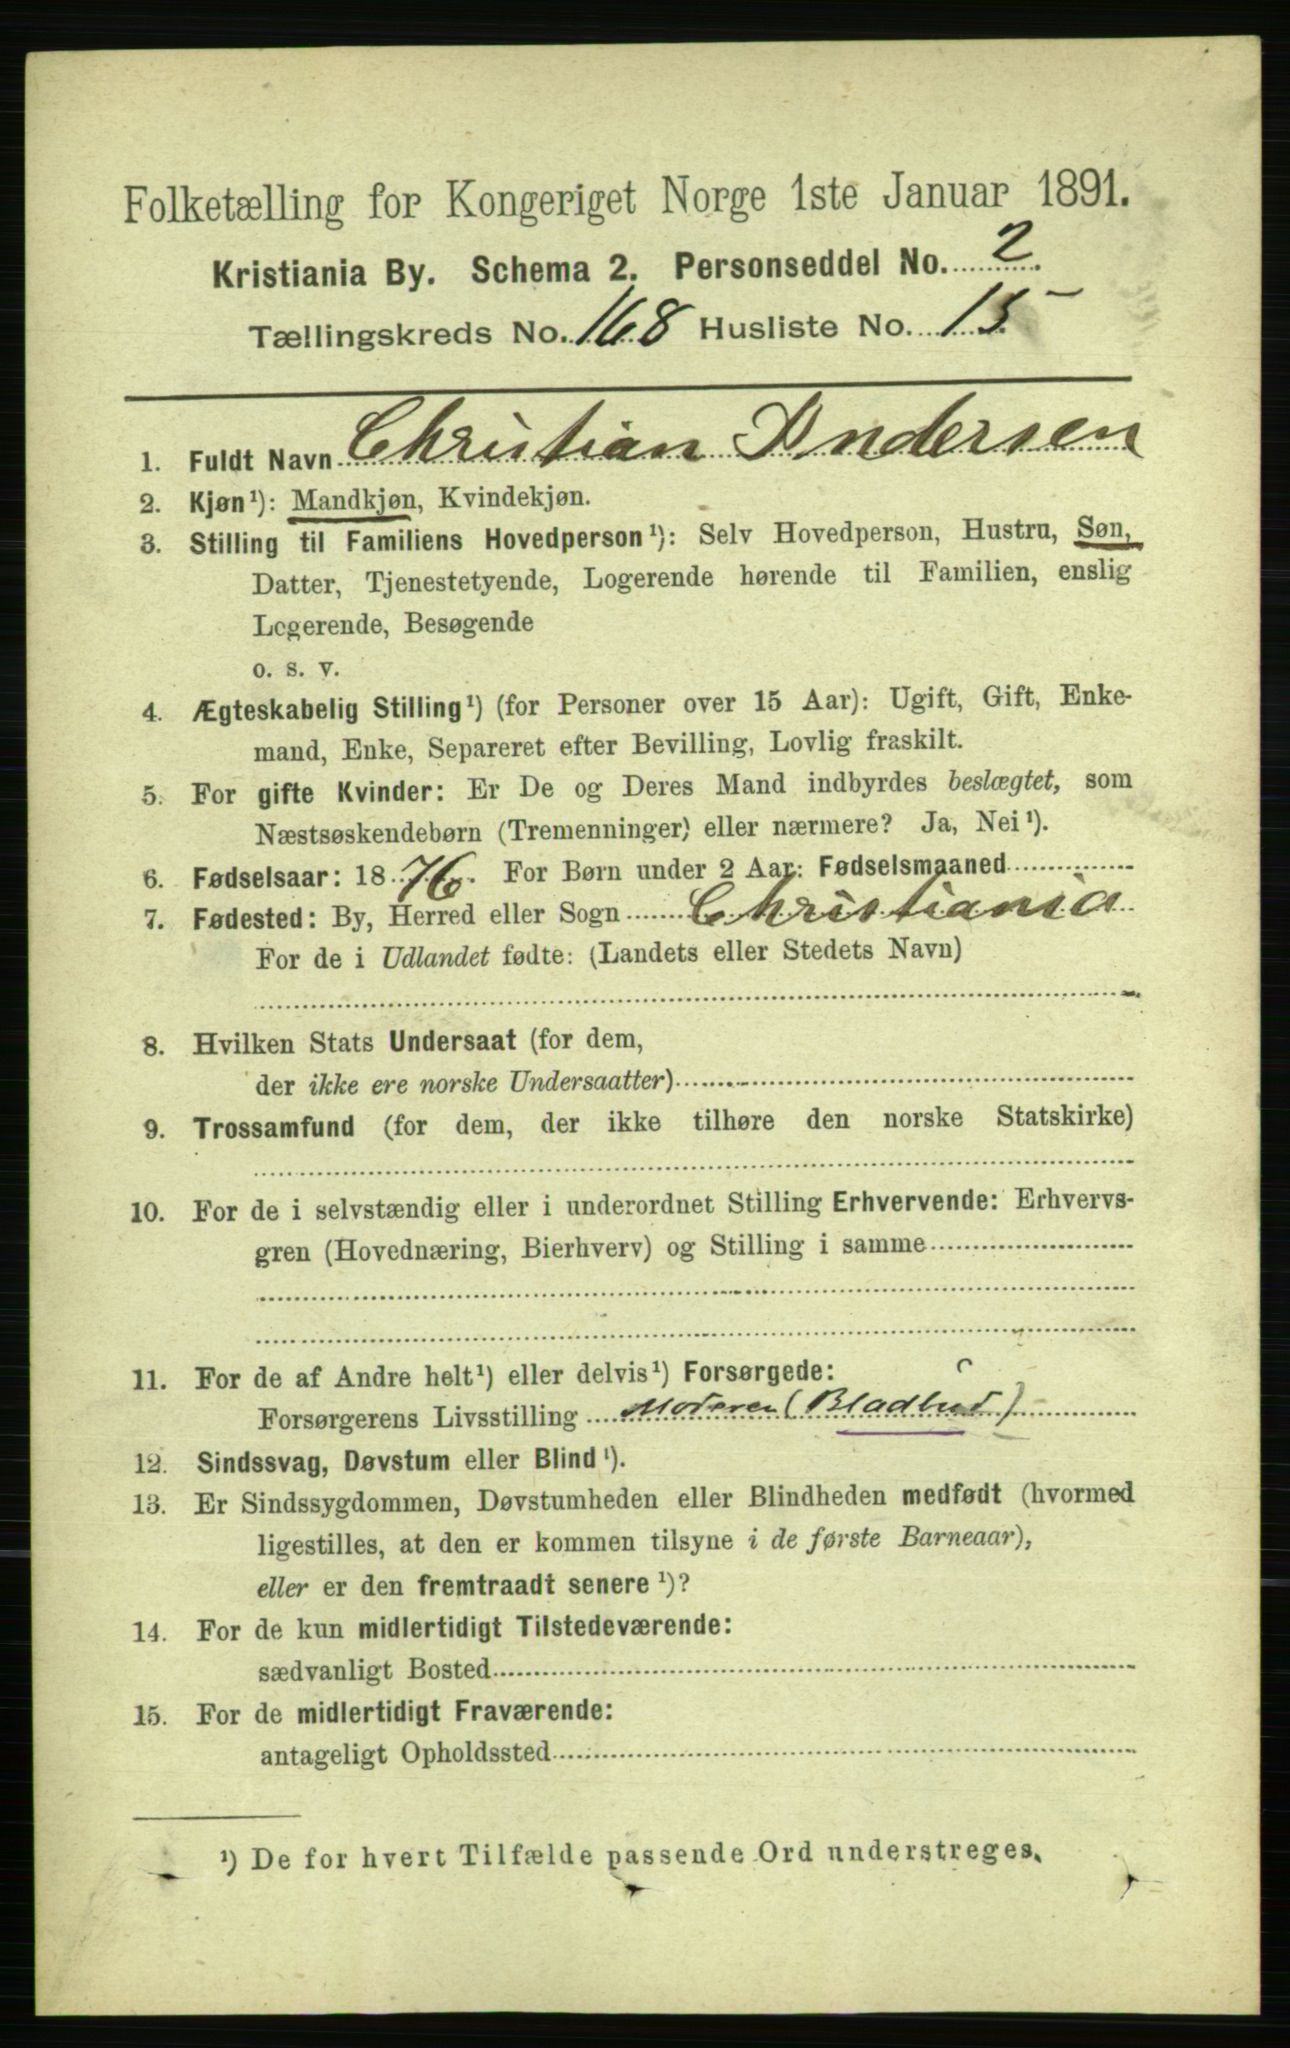 Folketælling for Kongeriget Norge 1ste Januar 1891.
Kristiania By. Schema 2. Personseddel No. 2.
Tællingskreds No. 168 Husliste No. 15
1. Fuldt Navn Christian Andersen
2. Kjøn¹): Mandkjøn, Kvindekjøn.
3. Stilling til Familiens Hovedperson¹): Selv Hovedperson, Hustru, Søn,
Datter, Tjenestetyende, Logerende hørende til Familien, enslig
Logerende, Besøgende
o. s. v.
4. Ægteskabelig Stilling¹) (for Personer over 15 Aar): Ugift, Gift, Enke-
mand, Enke, Separeret efter Bevilling, Lovlig fraskilt.
5. For gifte Kvinder: Er De og Deres Mand indbyrdes beslægtet, som
Næstsøskendebørn (Tremenninger) eller nærmere? Ja, Nei¹).
6. Fødselsaar: 1876. For Børn under 2 Aar: Fødselsmaaned
7. Fødested: By, Herred eller Sogn Christiania
For de i Udlandet fødte: (Landets eller Stedets Navn)
8. Hvilken Stats Undersaat (for dem,
der ikke ere norske Undersaatter)
9. Trossamfund (for dem, der ikke tilhøre den norske Statskirke)
10. For de i selvstændig eller i underordnet Stilling Erhvervende: Erhvervs-
gren (Hovednæring, Bierhverv) og Stilling i samme
11. For de af Andre helt¹) eller delvis¹) Forsørgede:
Forsørgerens Livsstilling Moderen (Bladbud)
12. Sindssvag, Døvstum eller Blind¹).
13. Er Sindssygdommen, Døvstumheden eller Blindheden medfødt (hvormed
ligestilles, at den er kommen tilsyne i de første Barneaar),
eller er den fremtraadt senere¹)?
14. For de kun midlertidigt Tilstedeværende:
sædvanligt Bosted
15. For de midlertidigt Fraværende:
antageligt Opholdssted
¹) De for hvert Tilfælde passende Ord understreges.